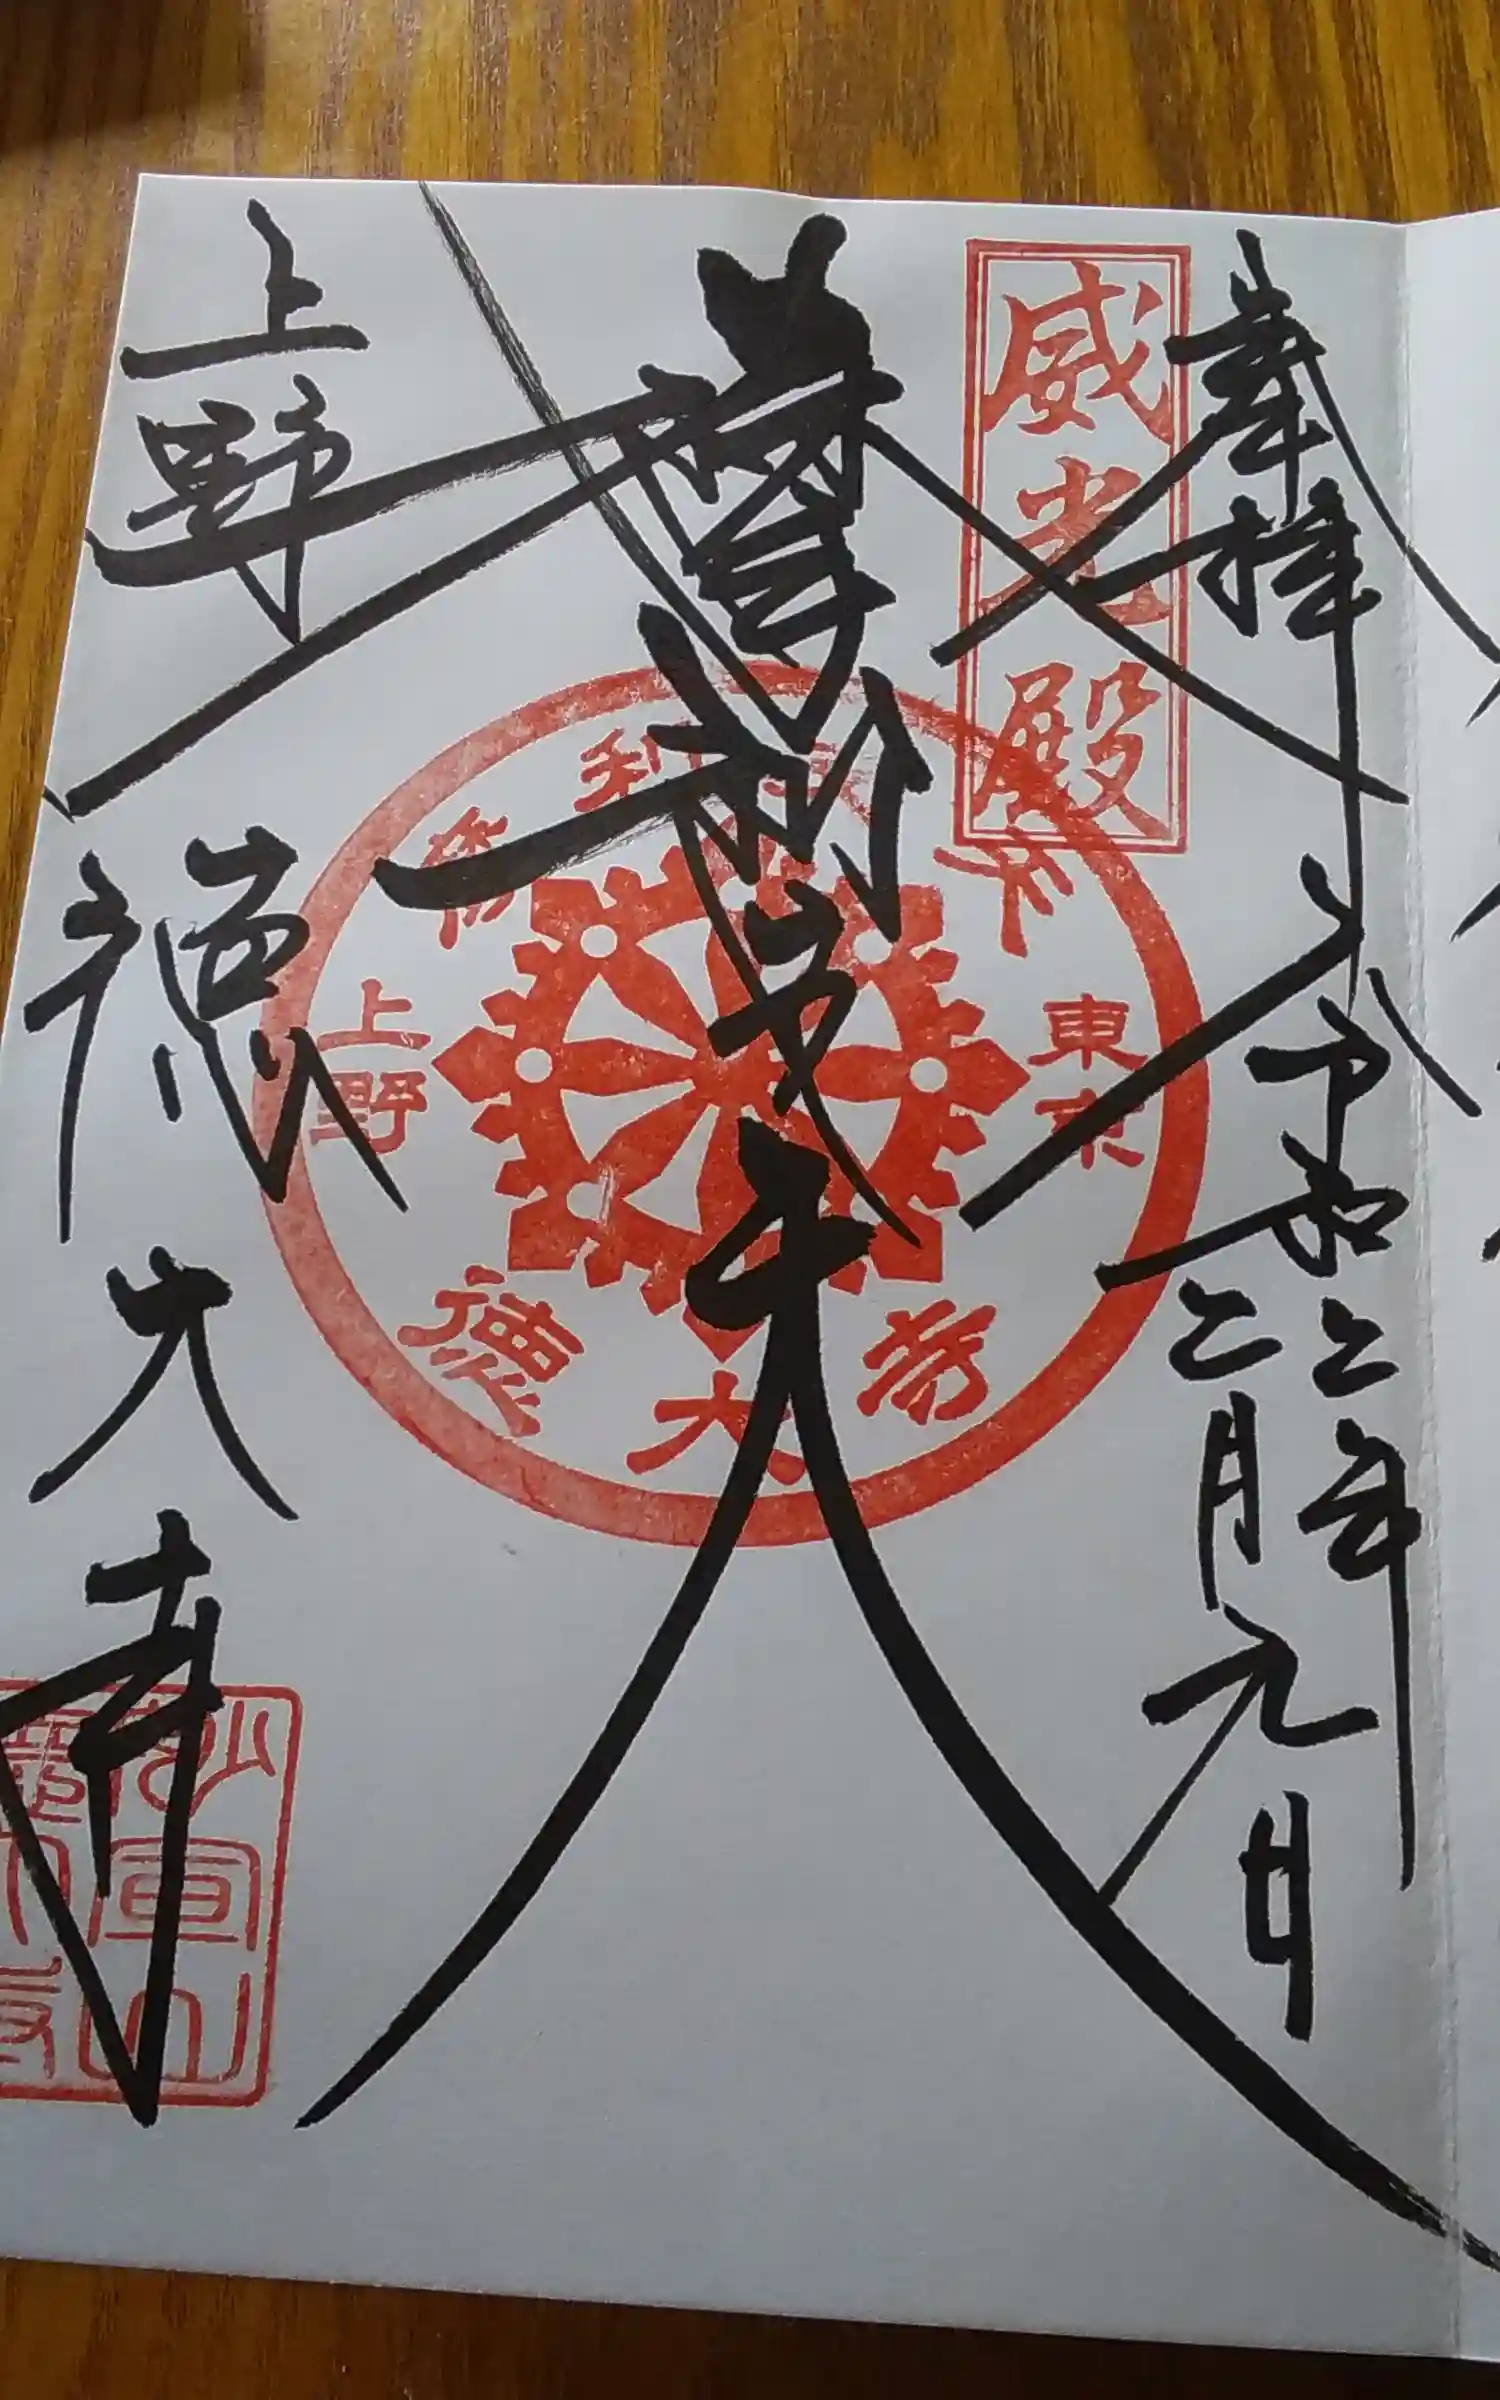 奉拝
令和二年
二月元日
威光殿
摩利支天
摩利支天
東京
上野
徳大寺
上野
徳大寺
妙宣山